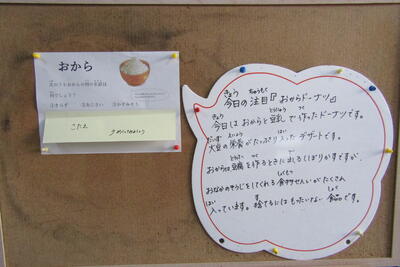 おから
何でしょう？
こたえ
きょう ちゅうもく
今日の注目『おからドーナツ』
きょう とうにゅう つく
今日はおからと豆乳で作ったドーナツです。
だいず えいよう はい
大豆の栄養がたっぷり入ったデザートです。
とうふ つく で
おからは豆腐を作るときに出るしぼりかすですが、
しょくもつ
おなかのそうじをしてくれる食物せんいがたくさん
はい す しょく
入っています。捨てるにはもったいない食品です。